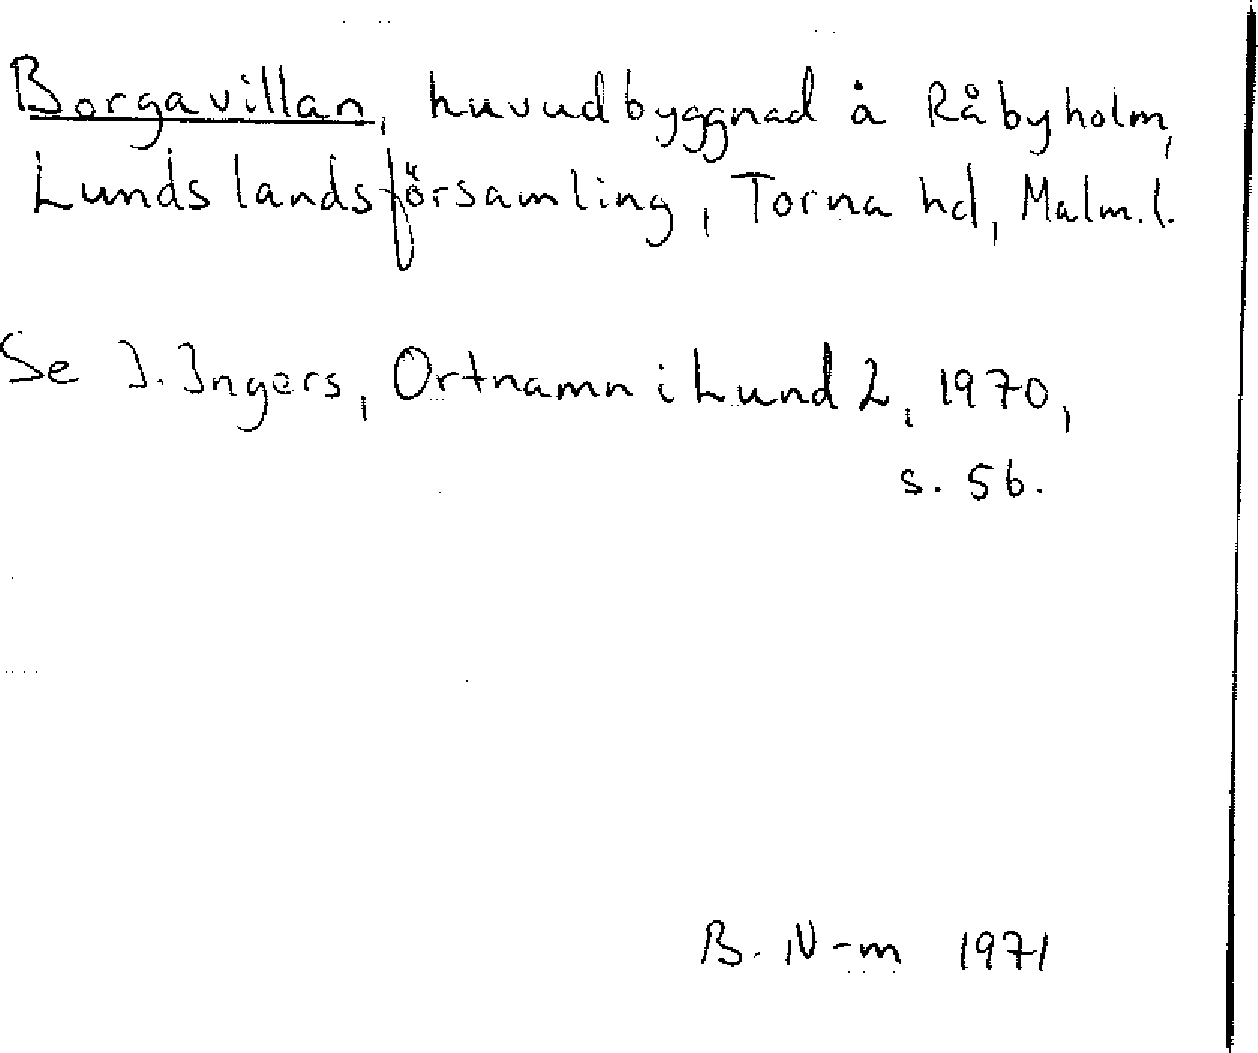 Borgavillan, huvudbyggnad å Råbyholm,
Lunds landsförsamling, Torna hd, Malm. l.
Se I. Ingers, Ortnamn i Lund 2, 1970,
s. 56.
B. N-m 1971